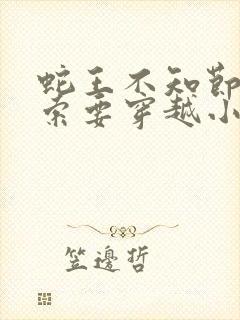 蛇王不知節
索要穿越小
笠邊哲